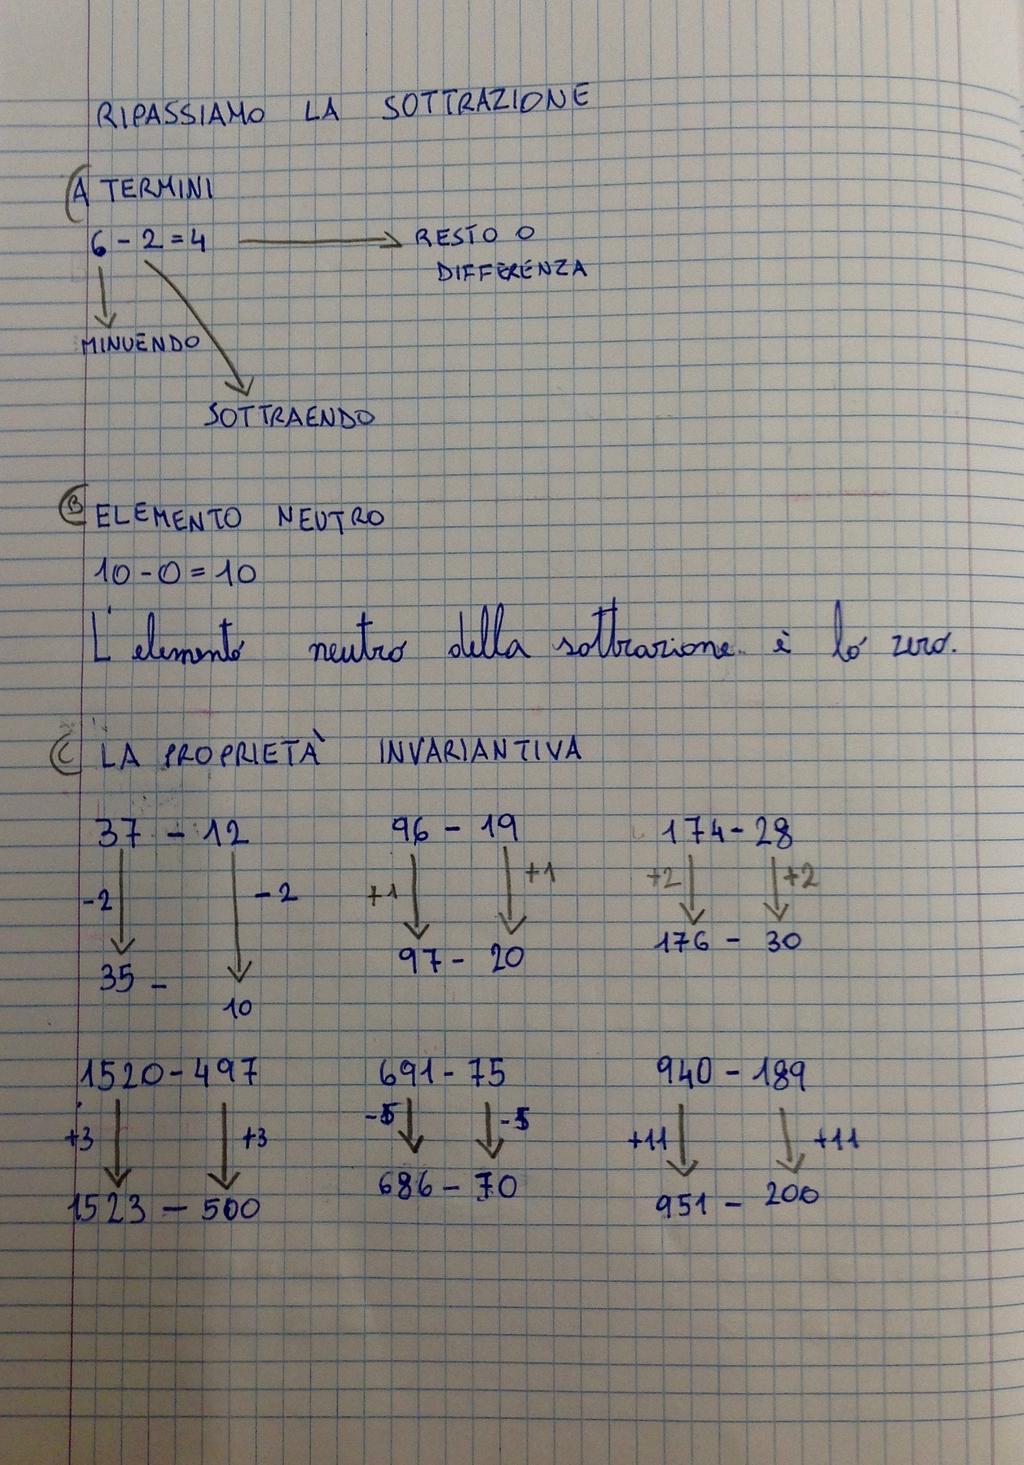 RIPASSIAMO LA SOTTRAZIONE
A TERMINI
6 - 2 = 4 RESTO O
DIFFERENZA
MINUENDO
SOTTRAENDO
B ELEMENTO NEUTRO
10 - 0 = 10
L'elemento neutro della sottrazione è lo zero.
C LA PROPRIETÀ INVARIANTIVA
37 - 12 96 - 19 174 - 28
-2 -2 +1 +1 +2 +2
35 - 10 97 - 20 176 - 30
1520 - 497 691 - 75 940 - 189
+3 +3 -5 -5 +11 +11
1523 - 500 686 - 70 951 - 200